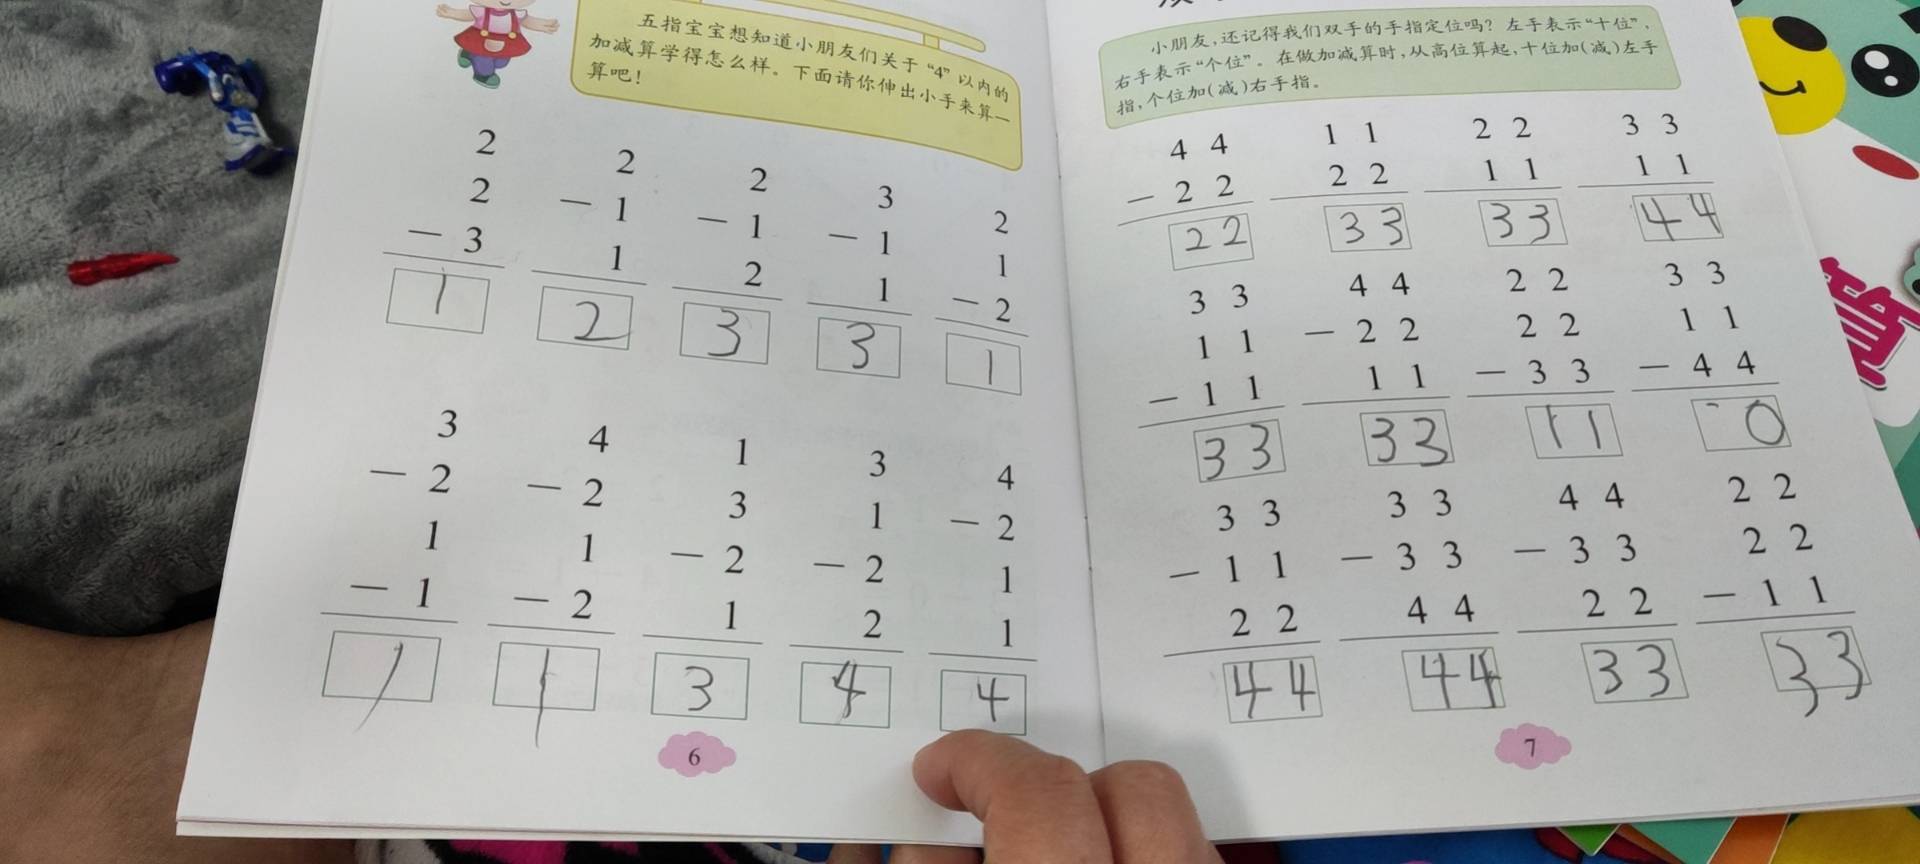 五指宝宝想知道小朋友们关于“4”以内的
加减算学得怎么样。下面请你伸出小手来算一
算吧！
2 2 2 3 2
2 －1 －1 －1 1
－3 1 2 1 －2
1 2 3 3 1
3 4 1 3 4
－2 －2 3 1 －2
1 1 －2 －2 1
－1 －2 1 2 1
1 1 3 4 4
6
小朋友，还记得我们双手的手指定位吗？左手表示“十位”，
右手表示“个位”。在做加减算时，从高位算起，十位加(减)左手
指，个位加(减)右手指。
4 4 1 1 2 2 3 3
－2 2 2 2 1 1 1 1
22 33 33 44
3 3 4 4 2 2 3 3
1 1 －2 2 2 2 1 1
－1 1 1 1 －3 3 －4 4
33 33 11 0
3 3 3 3 4 4 2 2
－1 1 －3 3 －3 3 2 2
2 2 4 4 2 2 －1 1
44 44 33 33
7
算